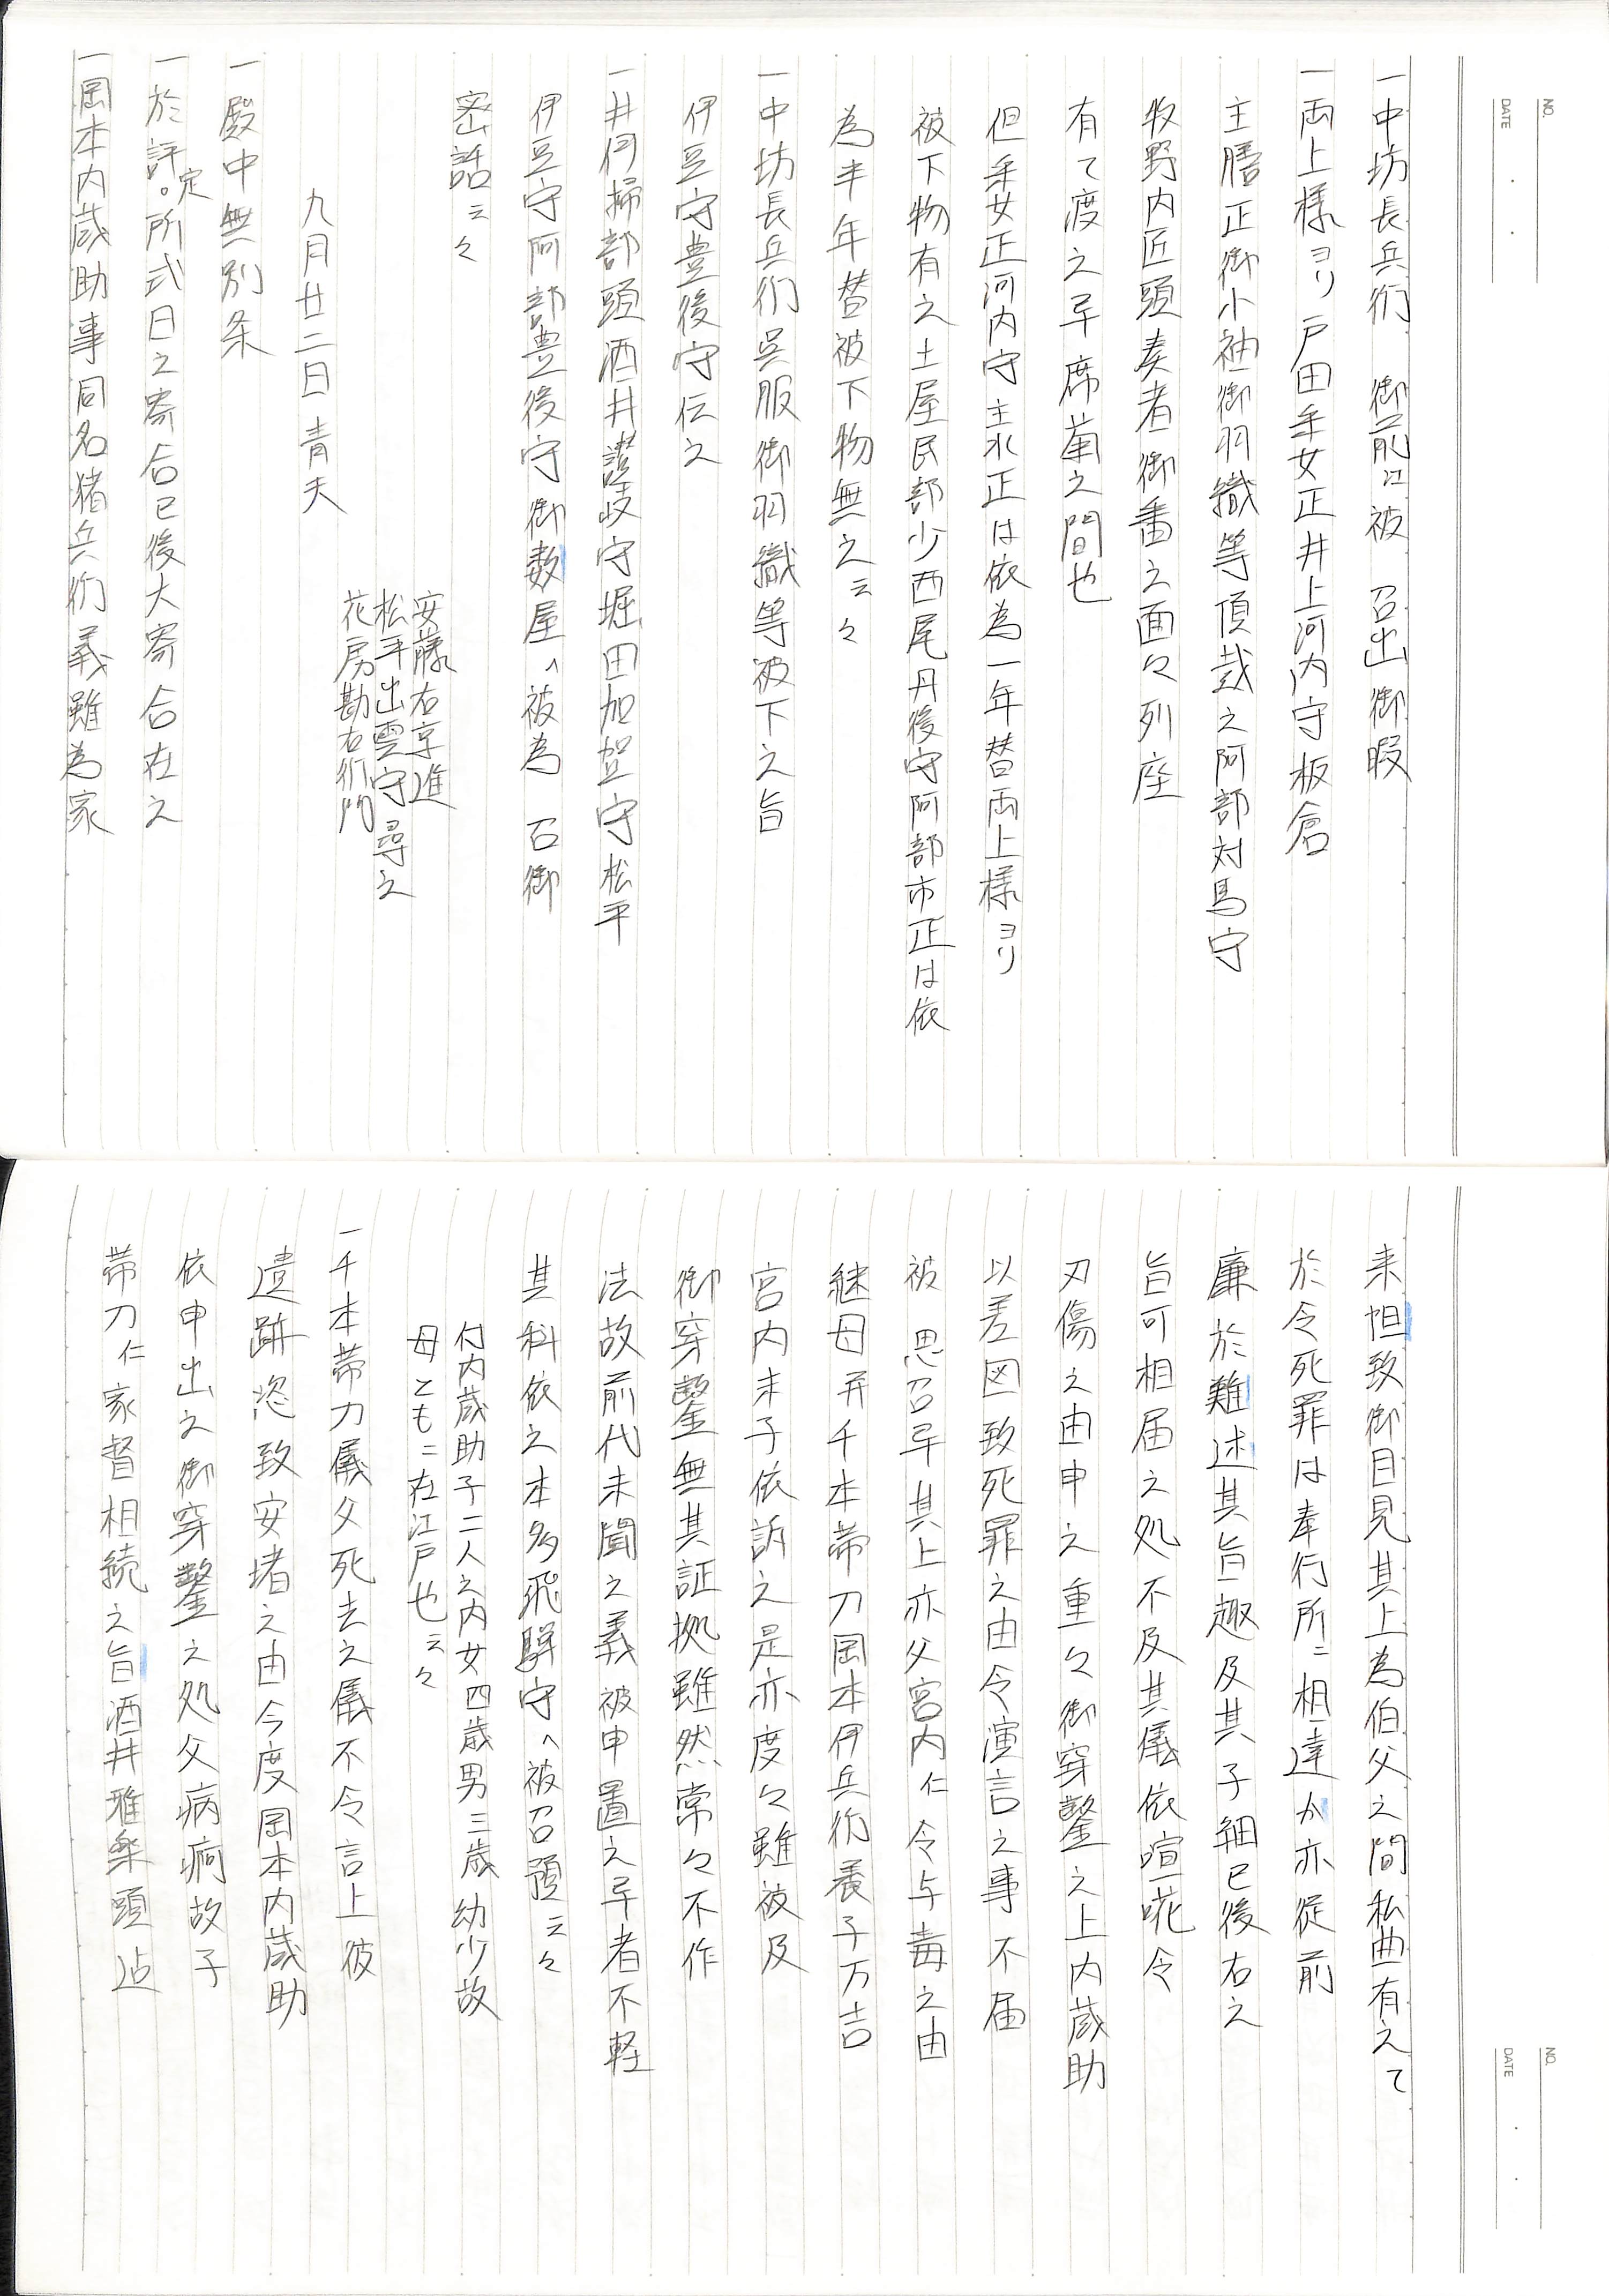 NO.
DATE
一中坊長兵衛 御前江被 召出御暇
一両上様ヨリ戸田采女正井上河内守板倉
主膳正御小袖御羽織等頂戴之阿部対馬守
牧野内匠頭奏者御番之面々列座
有て渡之畢席菊之間也
但采女正河内守主水正は依為一年替両上様ヨリ
被下物有之土屋民部少西尾丹後守阿部市正は依
為半年替被下物無之云々
一中坊長兵衛呉服御羽織等被下之旨
伊豆守豊後守伝之
一井伊掃部頭酒井讃岐守堀田加賀守松平
伊豆守阿部豊後守御数屋へ被為 召御
密話云々
安藤右京進
松平出雲守尋之
花房勘右衛門
九月廿二日 青天
一殿中無別条
一於評定所式日之寄合已後大寄合在之
一岡本内蔵助事同名猪兵衛義雖為家
NO.
DATE
来怛致御目見其上為伯父之間私曲有之て
於令死罪は奉行所ニ相達か亦従前
廉於難述其旨趣及其子細已後右之
旨可相届之処不及其儀依喧嘩令
刃傷之由申之重々御穿鑿之上内蔵助
以差図致死罪之由令演言之事不届
被 思召畢其上亦父宮内仁令与毒之由
継母并千本帯刀岡本伊兵衛養子万吉
宮内末子依訴之是亦度々雖被及
御穿鑿無其証拠雖然常々不作
法故前代未聞之義被申置之畢者不軽
其科依之本多飛騨守へ被召預云々
付内蔵助子二人之内女四歳男三歳幼少故
母ともニ在江戸也云々
一千本帯刀儀父死去之儀不令言上彼
遺跡恣致安堵之由今度岡本内蔵助
依申出之御穿鑿之処父病痾故子
帯刀仁家督相続之旨酒井雅楽頭迠